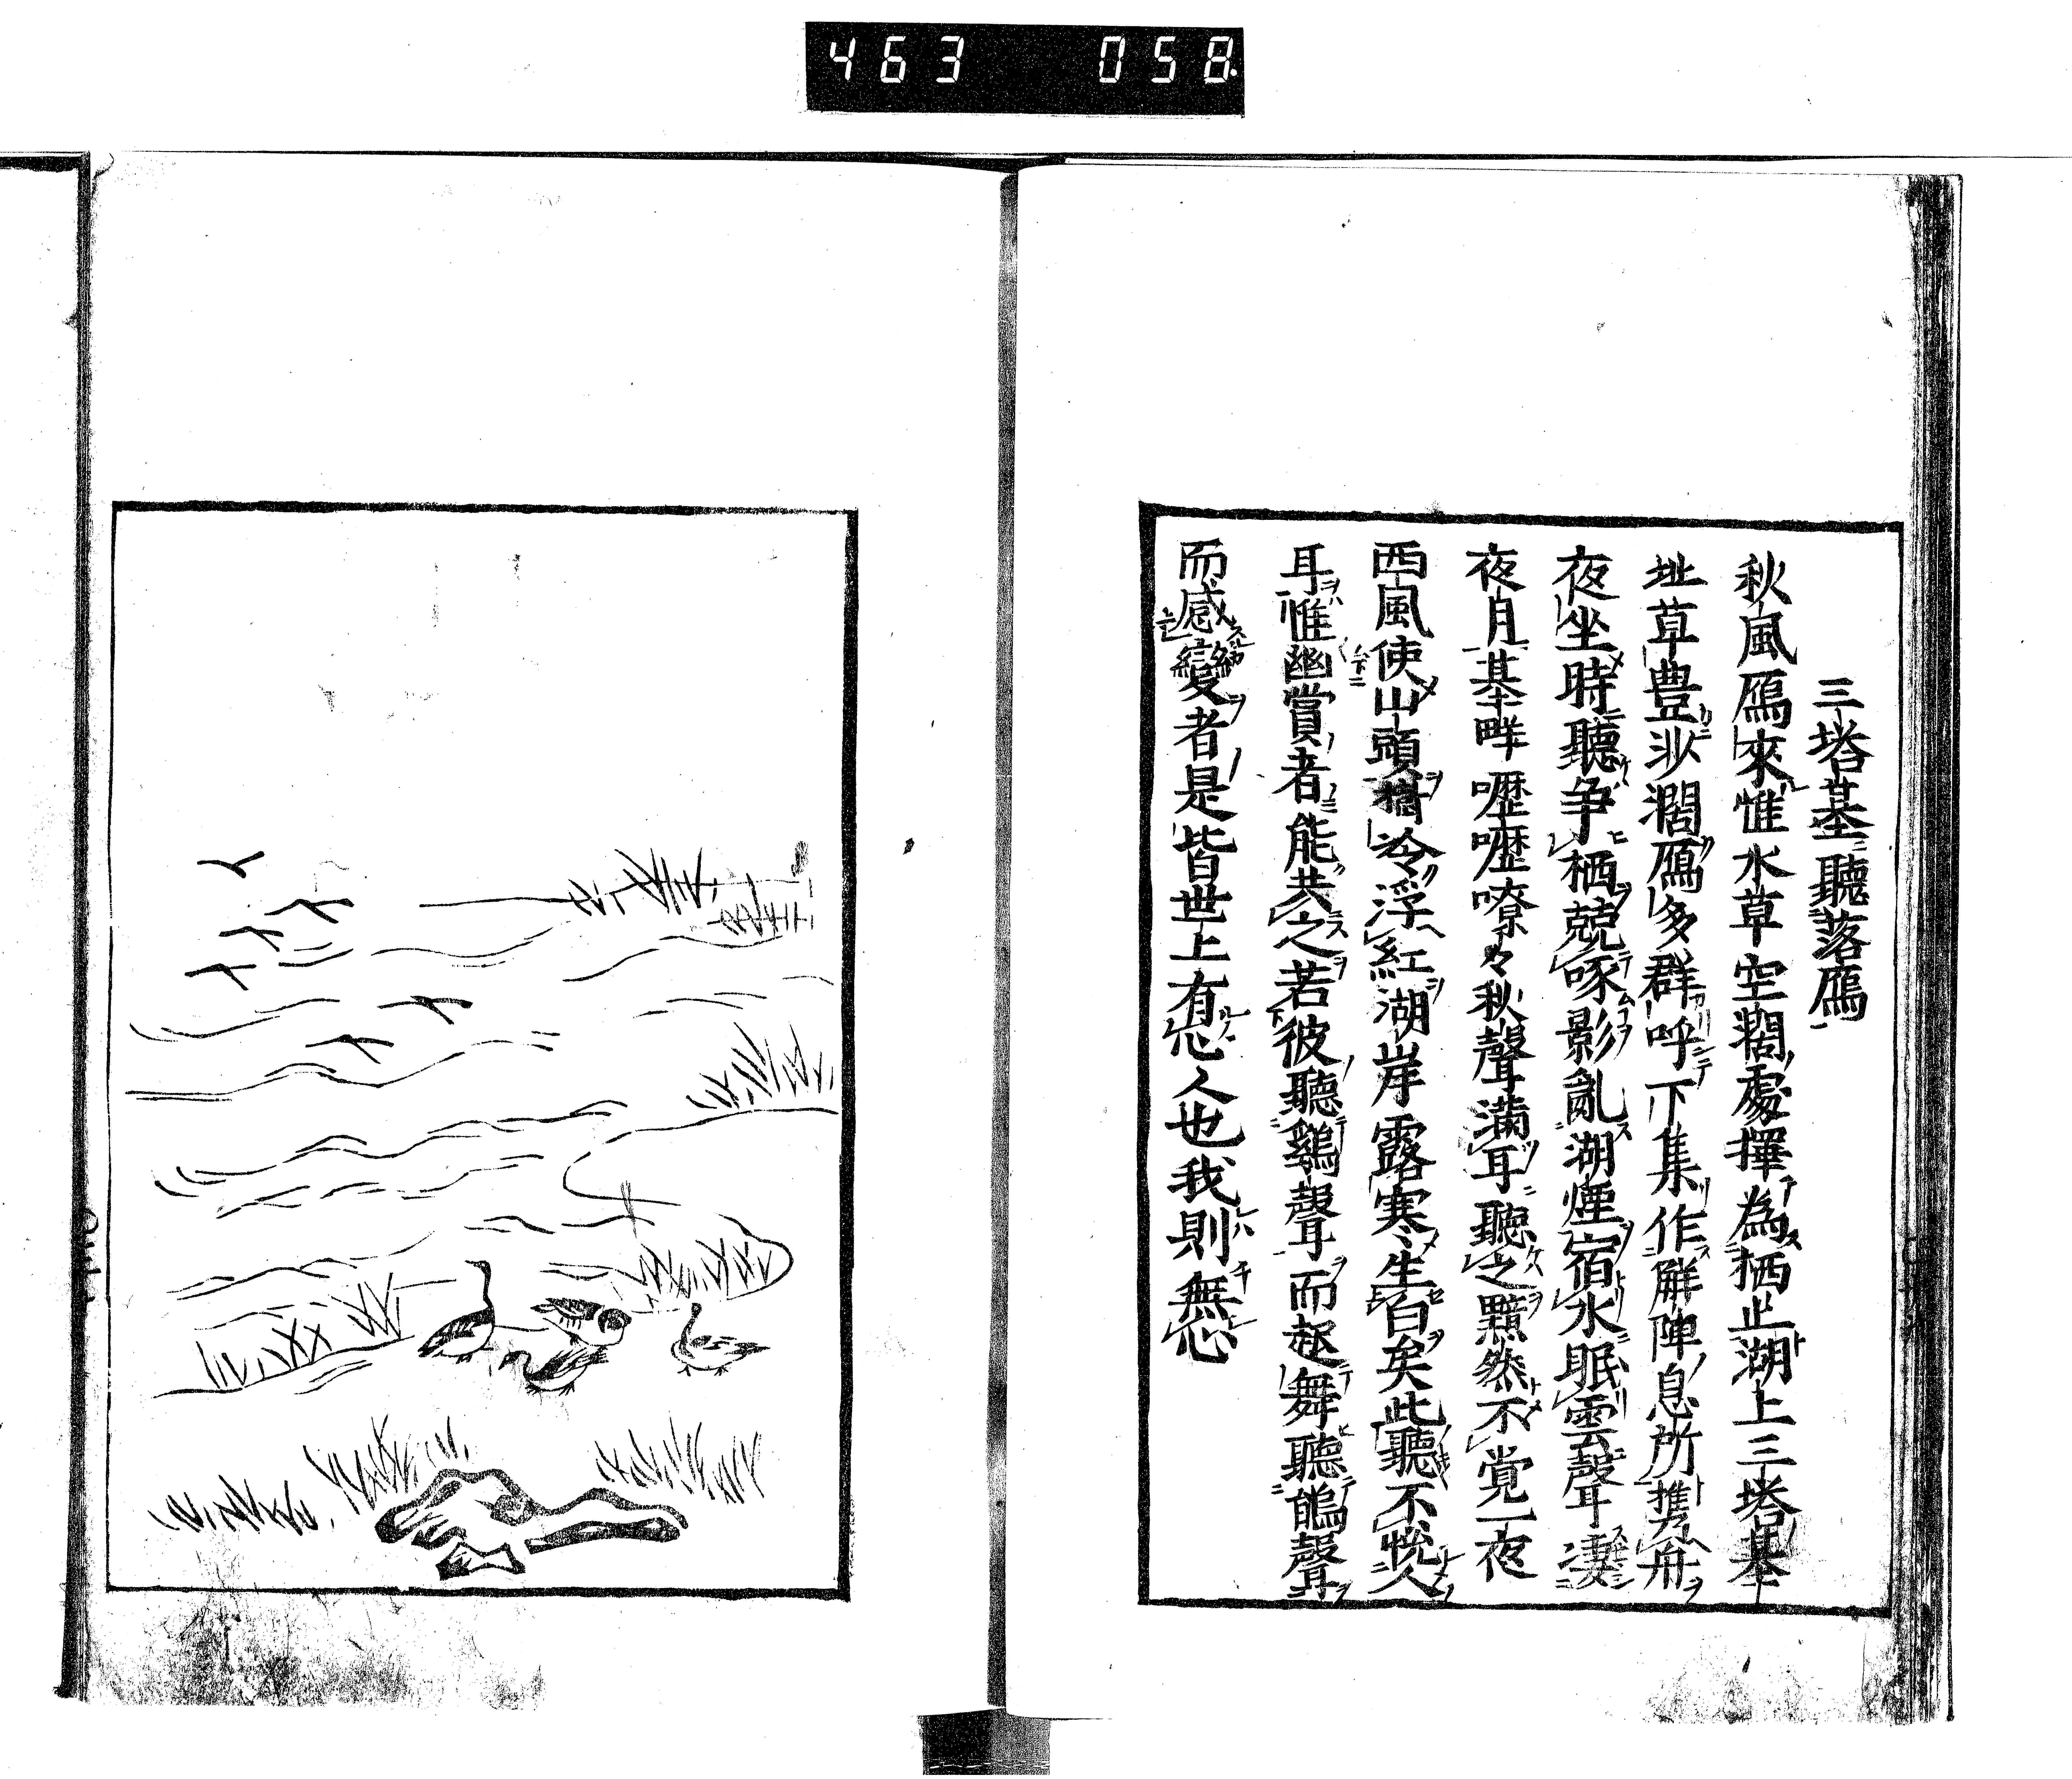 463 058
三塔基聽落鴈
秋風鴈來惟水草空濶處擇為栖止湖上三塔基
址草豊沙濶鴈多群呼下集作解陣息所携舟
夜坐時聽争栖兢啄影亂湖煙宿水眠雲聲凄
夜月基畔嚦嚦嘹々秋聲滿耳聽之黯然不覚一夜
西風使山頭樹冷浮紅湖岸露寒生白矣此聽不恱人
耳惟幽賞者能共之若彼聽鷄聲而起舞聽鵑聲
而感變者是皆世上有心人也我則無心